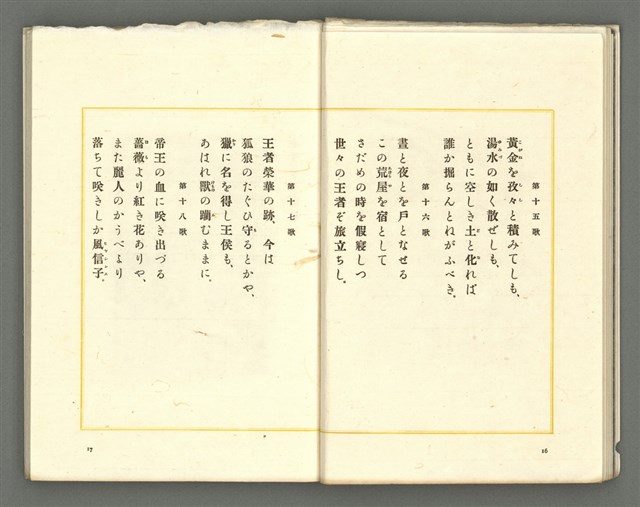 第十五歌
黃金を孜々と積みてしも、
湯水の如く散ぜしも、
ともに空しき土と化れば
誰か掘らんとねがふべき。
第十六歌
晝と夜とを戶となせる
この荒屋を宿として
さだめの時を假寢しつ
世々の王者ぞ旅立ちし。
16
第十七歌
王者榮華の跡、今は
狐狼のたぐひ守るとかや、
獵に名を得し王侯も、
あはれ獸の躪むままに。
第十八歌
帝王の血に咲き出づる
薔薇より紅き花ありや、
また麗人のかうべより
落ちて咲きしか風信子。
17